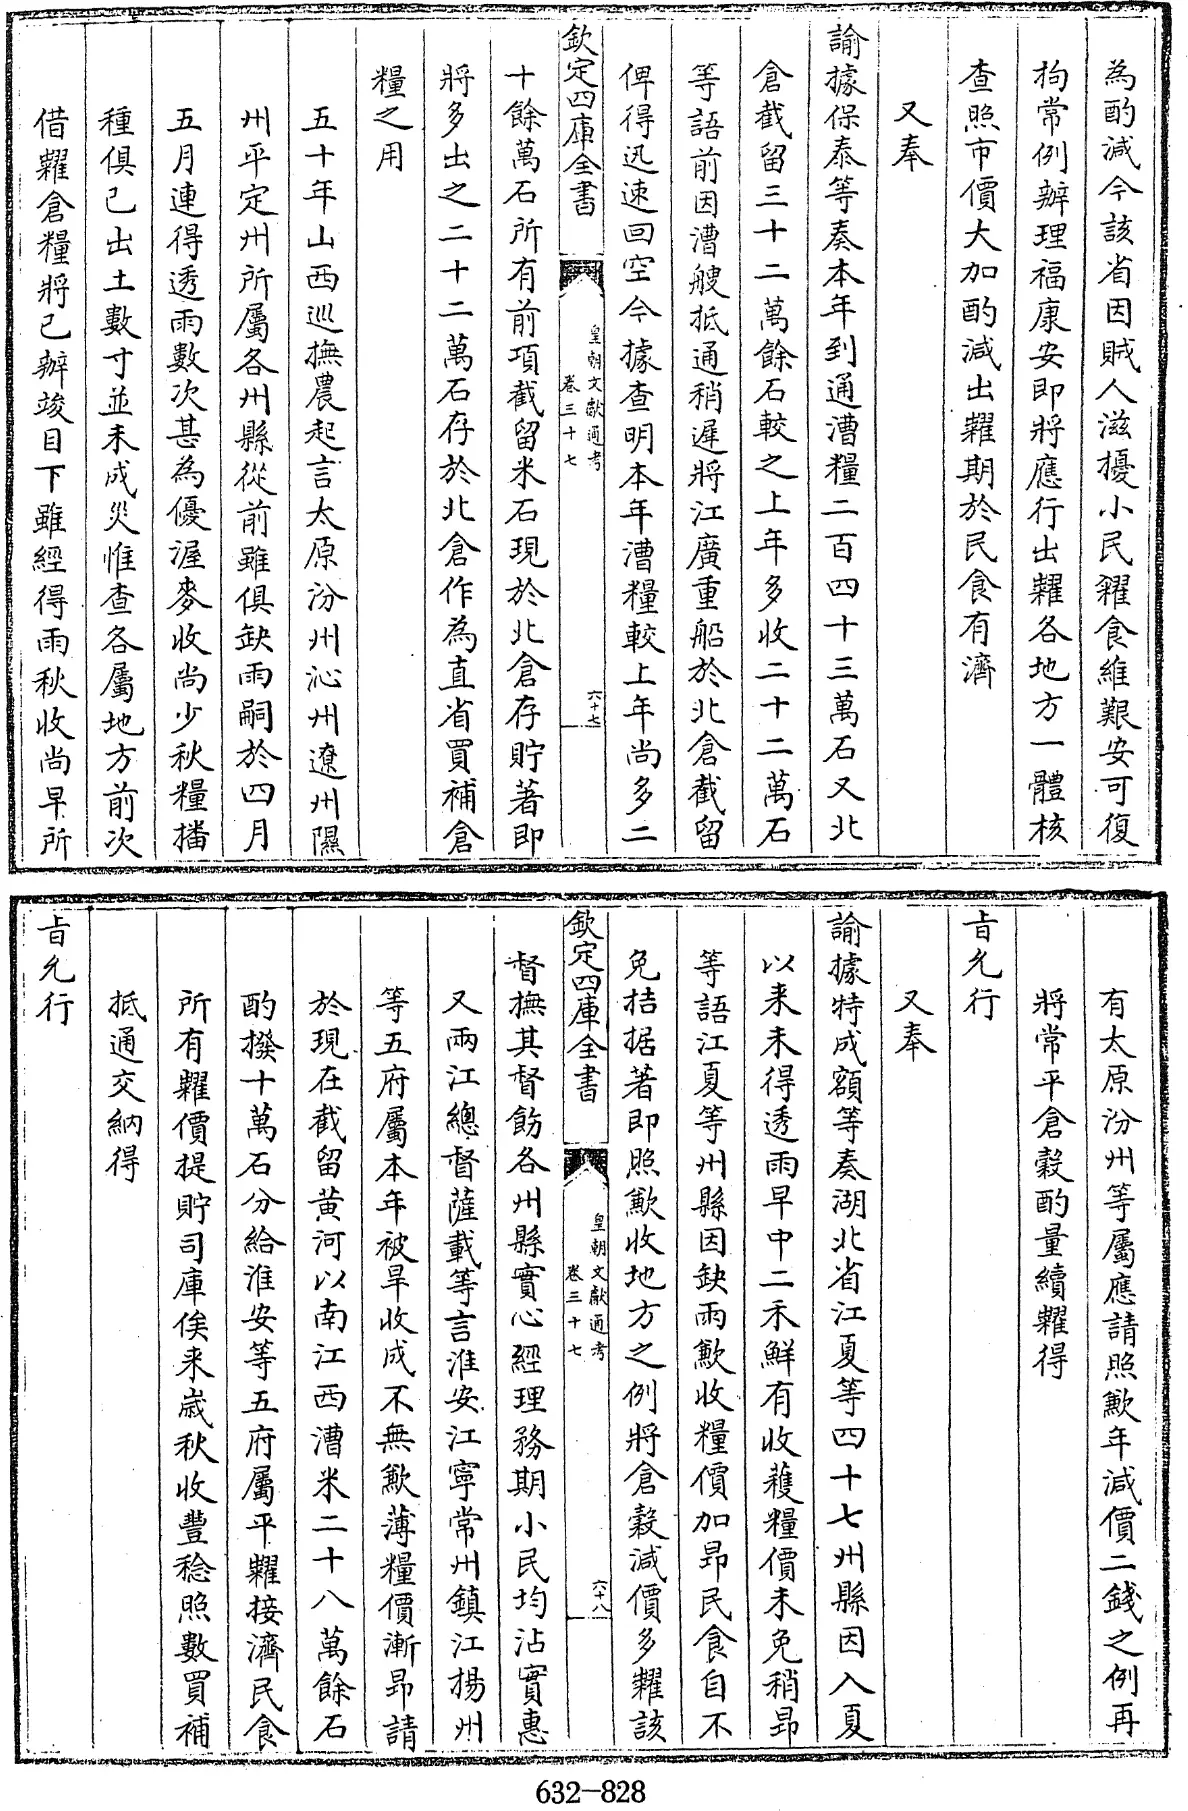 為酌減今該省因賊人滋擾小民糴食維艱安可復
拘常例辦理福康安即將應行出糶各地方一體核
查照市價大加酌減出糶期於民食有濟
又奉
諭據保泰等奏本年到通漕糧二百四十三萬石又北
倉截留三十二萬餘石較之上年多收二十二萬石
等語前因漕艘抵通稍遲將江廣重船於北倉截留
俾得迅速回空今據查明本年漕糧較上年尚多二
欽定四庫全書
皇朝文獻通考
卷三十七
六十七
十餘萬石所有前項截留米石現於北倉存貯著即
將多出之二十二萬石存於北倉作為直省買補倉
糧之用
五十年山西巡撫農起言太原汾州沁州遼州隰
州平定州所屬各州縣從前雖俱缺雨嗣於四月
五月連得透雨數次甚為優渥麥收尚少秋糧播
種俱已出土數寸並未成災惟查各屬地方前次
借糶倉糧將已辦竣目下雖經得雨秋收尚早所
有太原汾州等屬應請照歉年減價二錢之例再
將常平倉穀酌量續糶得
旨允行
又奉
諭據特成額等奏湖北省江夏等四十七州縣因入夏
以來未得透雨早中二禾鮮有收穫糧價未免稍昂
等語江夏等州縣因缺雨歉收糧價加昂民食自不
免拮据著即照歉收地方之例將倉穀減價多糶該
欽定四庫全書
皇朝文獻通考
卷三十七
六十八
督撫其督飭各州縣實心經理務期小民均沾實惠
又兩江總督薩載等言淮安江寧常州鎮江揚州
等五府屬本年被旱收成不無歉薄糧價漸昂請
於現在截留黃河以南江西漕米二十八萬餘石
酌撥十萬石分給淮安等五府屬平糶接濟民食
所有糶價提貯司庫俟來歲秋收豐稔照數買補
抵通交納得
旨允行
632-828